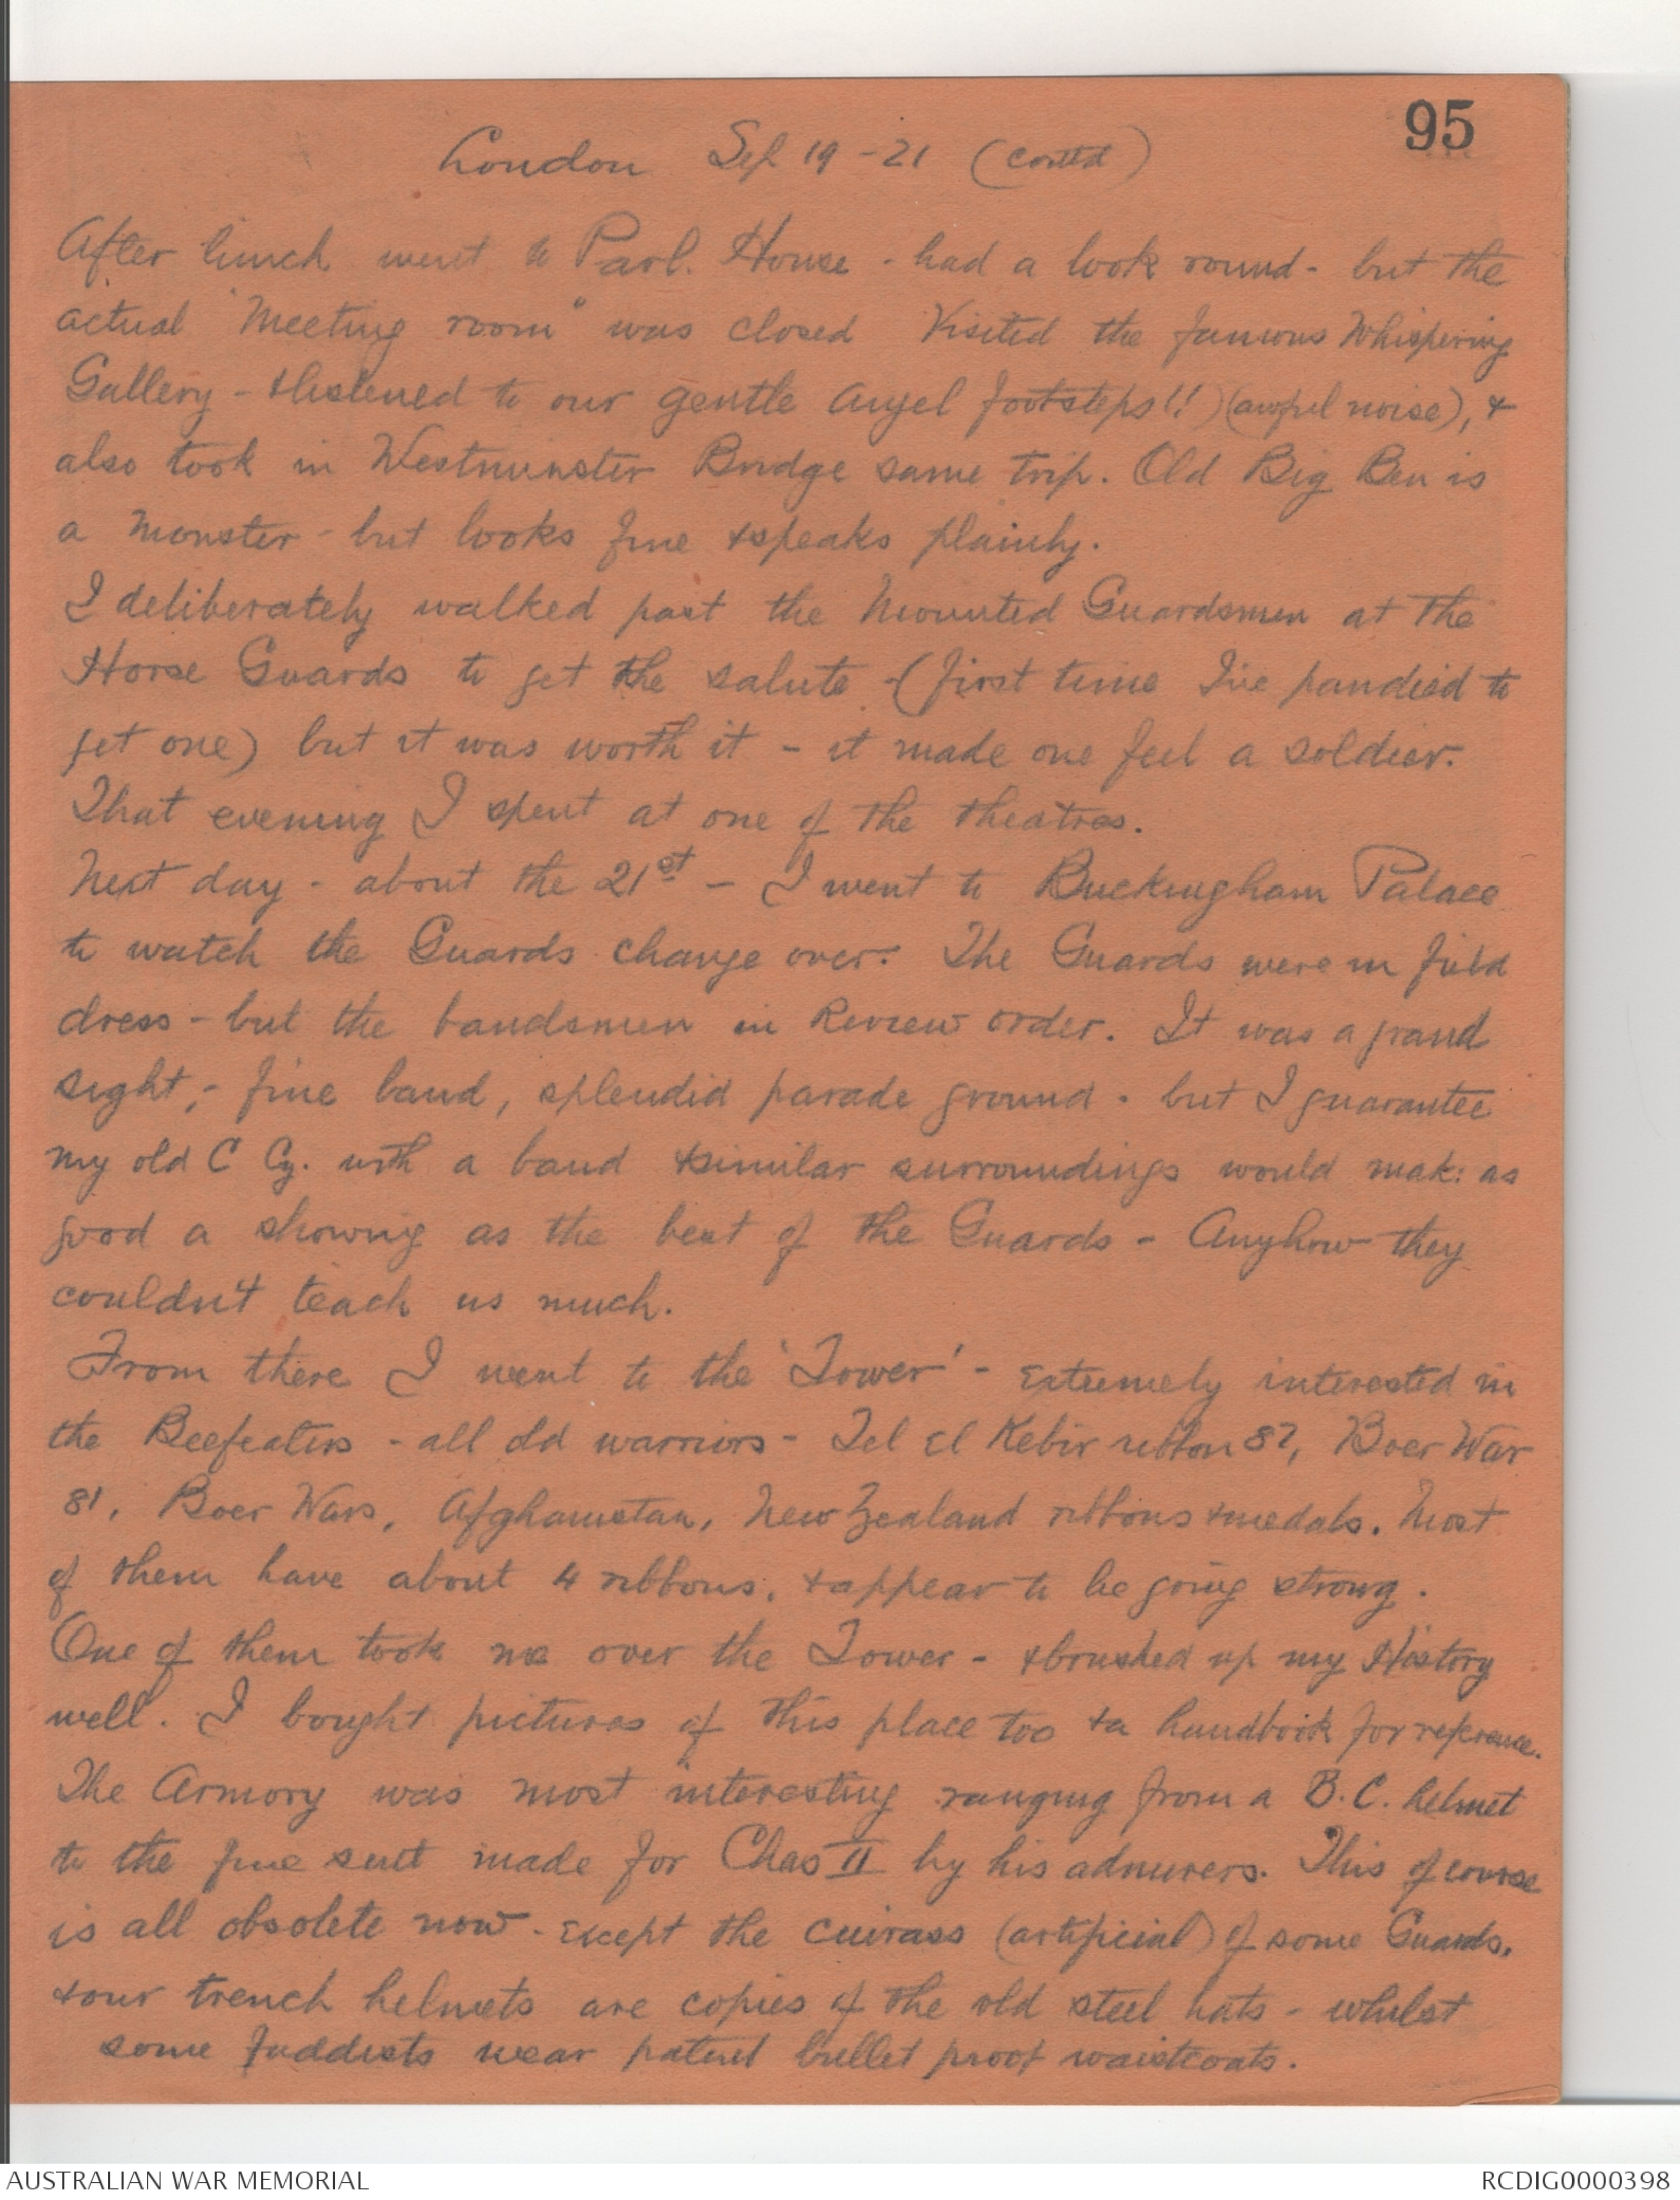 95
London Sep 19-21 (contd)
After lunch went to Parl. House - had a look round - but the
actual "Meeting room" was closed Visited the famous Whispering
Gallery - & listened to our gentle angel footsteps!! (awful noise), &
also took in Westminster Bridge same trip. Old Big Ben is
a monster - but looks fine & speaks plainly.
I deliberately walked past the Mounted Guardsmen at the
Horse Guards to get the salute - (first time I've pandied to
get one) but it was worth it - it made one feel a soldier.
That evening I spent at one of the theatres.
Next day - about the 21st - I went to Buckingham Palace
to watch the Guards change over. The Guards were in field
dress - but the bandsmen in Review order. It was a grand
sight, - fine band, splendid parade ground - but I guarantee
my old C Cy. with a band & similar surroundings would mak: as
good a showing as the best of the Guards - Anyhow they
couldn't teach us much.
From there I went to the 'Tower' - extremely interested in
the Beefeaters - all old warriors - Tel el Kebir ribbon 82, Boer War
81, Boer Wars, Afghanistan, New Zealand ribbons & medals. Most
of them have about 4 ribbons, & appear to be going strong.
One of them took me over the Tower - & brushed up my History
well. I bought pictures of this place too & a handbook for reference.
The Armory was most interesting ranging from a B.C. helmet
to the fine suit made for Chas II by his admirers. This of course
is all obsolete now - except the cuirass (artificial) of some Guards,
& our trench helmets are copies of the old steel hats - whilst
some faddists wear patent bullet proof waistcoats.
AUSTRALIAN WAR MEMORIAL
RCDIG0000398